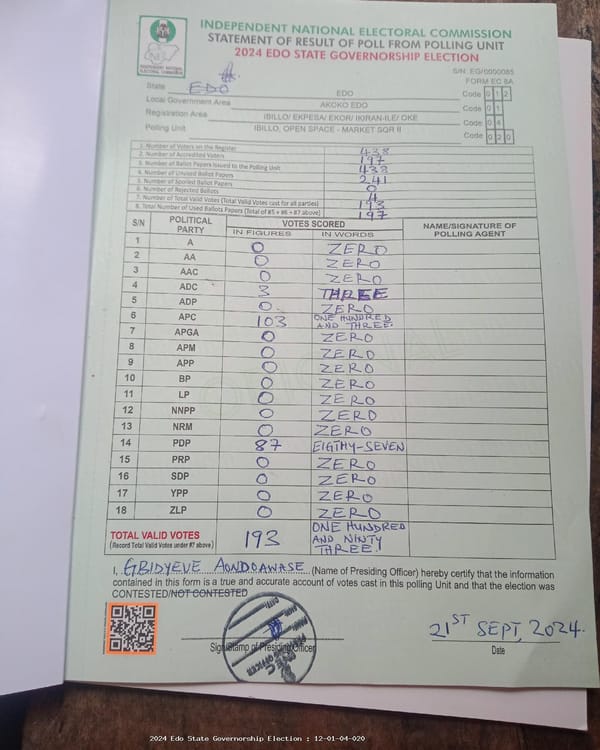 INDEPENDENT NATIONAL ELECTORAL COMMISSION
STATEMENT OF RESULT OF POLL FROM POLLING UNIT
2024 EDO STATE GOVERNORSHIP ELECTION
S/N: EG/0000085
FORM EC 8A
State EDO EDO Code 0 1 2
Local Government Area AKOKO EDO Code 0 1
Registration Area IBILLO/ EKPESA/ EKOR/ IKIRAN-ILE/ OKE Code 0 4
Polling Unit IBILLO, OPEN SPACE - MARKET SQR II Code 0 2 0
1. Number of Voters on the Register 438
2. Number of Accredited Voters 197
3. Number of Ballot Papers Issued to the Polling Unit 438
4. Number of Unused Ballot Papers 241
5. Number of Spoiled Ballot Papers 0
6. Number of Rejected Ballots 4
7. Number of Total Valid Votes (Total Valid Votes cast for all parties) 193
8. Total Number of Used Ballots Papers (Total of #5 + #6 + #7 above) 197
S/N POLITICAL PARTY VOTES SCORED NAME/SIGNATURE OF POLLING AGENT
IN FIGURES IN WORDS
1 A 0 ZERO
2 AA 0 ZERO
3 AAC 0 ZERO
4 ADC 3 THREE
5 ADP 0 ZERO
6 APC 103 ONE HUNDRED AND THREE.
7 APGA 0 ZERO
8 APM 0 ZERO
9 APP 0 ZERO
10 BP 0 ZERO
11 LP 0 ZERO
12 NNPP 0 ZERO
13 NRM 0 ZERO
14 PDP 87 EIGTHY-SEVEN
15 PRP 0 ZERO
16 SDP 0 ZERO
17 YPP 0 ZERO
18 ZLP 0 ZERO
TOTAL VALID VOTES 193 ONE HUNDRED AND NINTY THREE!
(Record Total Valid Votes under #7 above)
I, GBIDYEVE AONDOAWASE (Name of Presiding Officer) hereby certify that the information
contained in this form is a true and accurate account of votes cast in this polling Unit and that the election was
CONTESTED/NOT CONTESTED
21ST SEPT, 2024.
Sign/Stamp of Presiding Officer
Date
2024 Edo State Governorship Election : 12-01-04-020